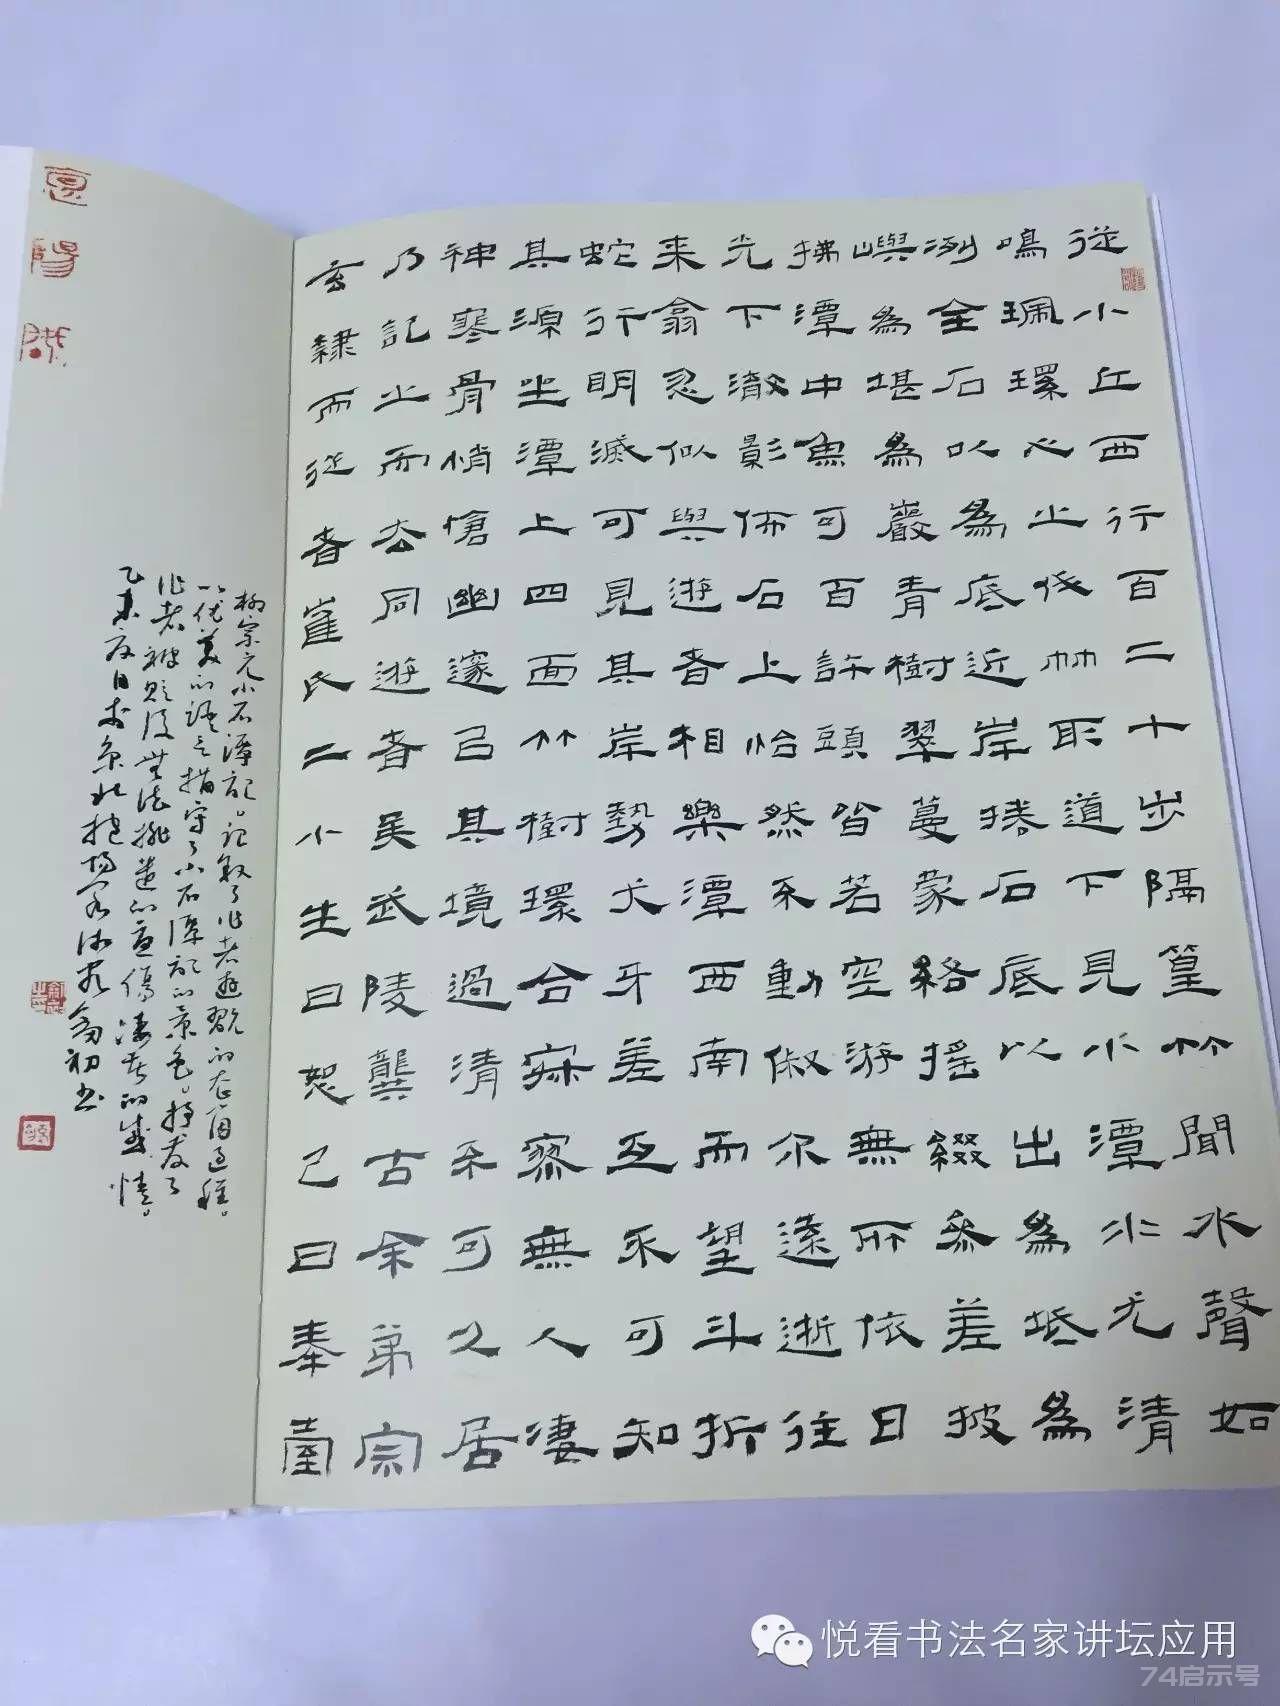 從小丘西行百二十步隔篁竹聞水聲如
鳴珮環心之伐林取道下見小潭水尤清
冽全石以為底近岸捲石底以出為坻為
嶼為堪為巖青樹翠蔓蒙絡搖綴參差披
拂潭中魚可百許頭皆若空游無所依日
光下澈影佈石上怡然不動俶尔遠逝往
来翕忽似與遊者相樂潭西南而望斗折
蛇行明滅可見其岸勢犬牙差互不可知
其源坐潭上四面竹樹環合寂寥無人凄
神寒骨悄愴幽邃以其境過清不可久居
乃記之而去同遊者吳武陵龔古余弟宗
玄隸而從者崔氏二小生曰恕己曰奉壹
柳宗元小石潭記。記敘了作者遊翫的過程。
以优美的語言描寫了小石潭記的景色。抒发了
作者被貶後無法排遣的憂傷凄苦的感情。
乙未夏日于京北初书
悦看书法名家讲坛应用
74启示号